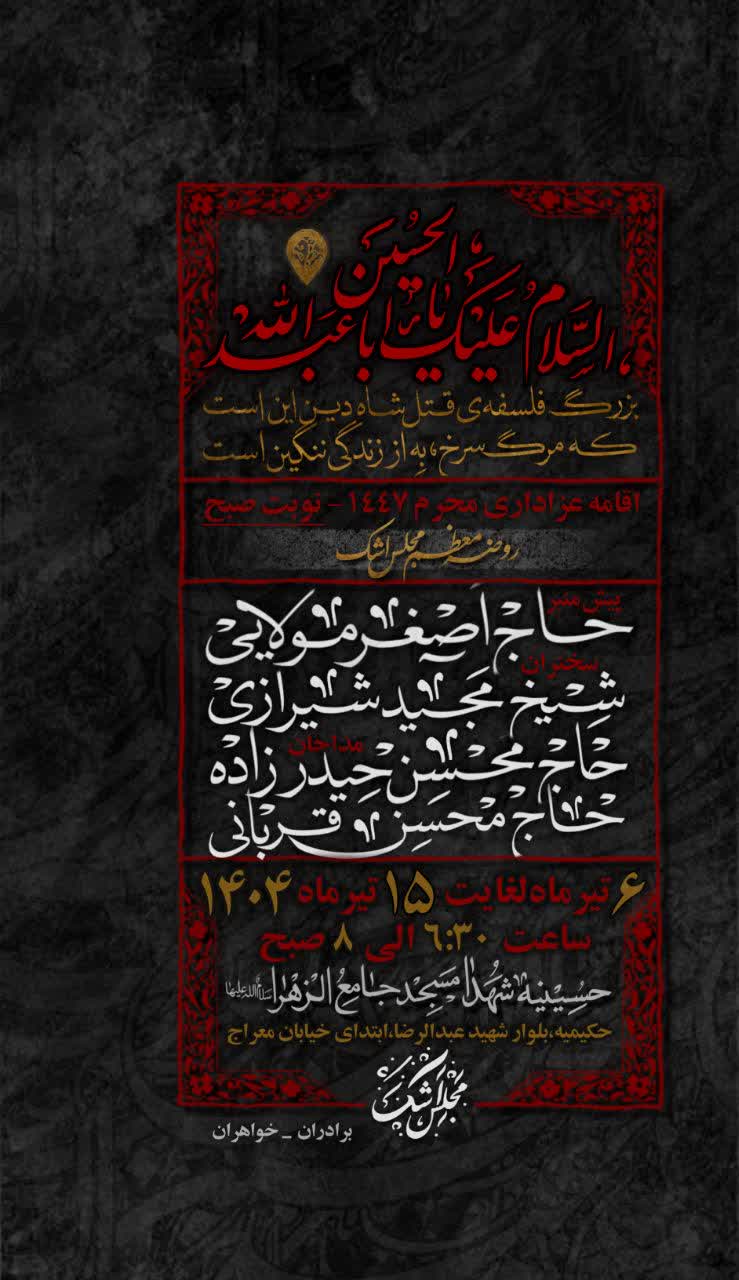 السَّلامُ عَلَیْکَ یا اَبا عَبدِالله الحُسَین
بزرگ فلسفه‌ی قتل شاه دین این است
که مرگ سرخ، بِه از زندگی ننگین است
اقامه عزاداری محرم ۱٤٤۷ - نوبت صبح
روضه معظم مجلس اشک
پیش منبر
حاج اصغر مولایی
سخنران
شیخ مجید شیرازی
مداحان
حاج محسن حیدر زاده
حاج محسن قربانی
۶ تیر ماه لغایت ۱۵ تیر ماه ۱۴۰۴
ساعت ٦:۳۰ الی ۸ صبح
حسینیه شهدا مسجد جامع الزهرا سلام الله علیها
حکیمیه،بلوار شهید عبدالرضا،ابتدای خیابان معراج
مجلس اشک
برادران _ خواهران